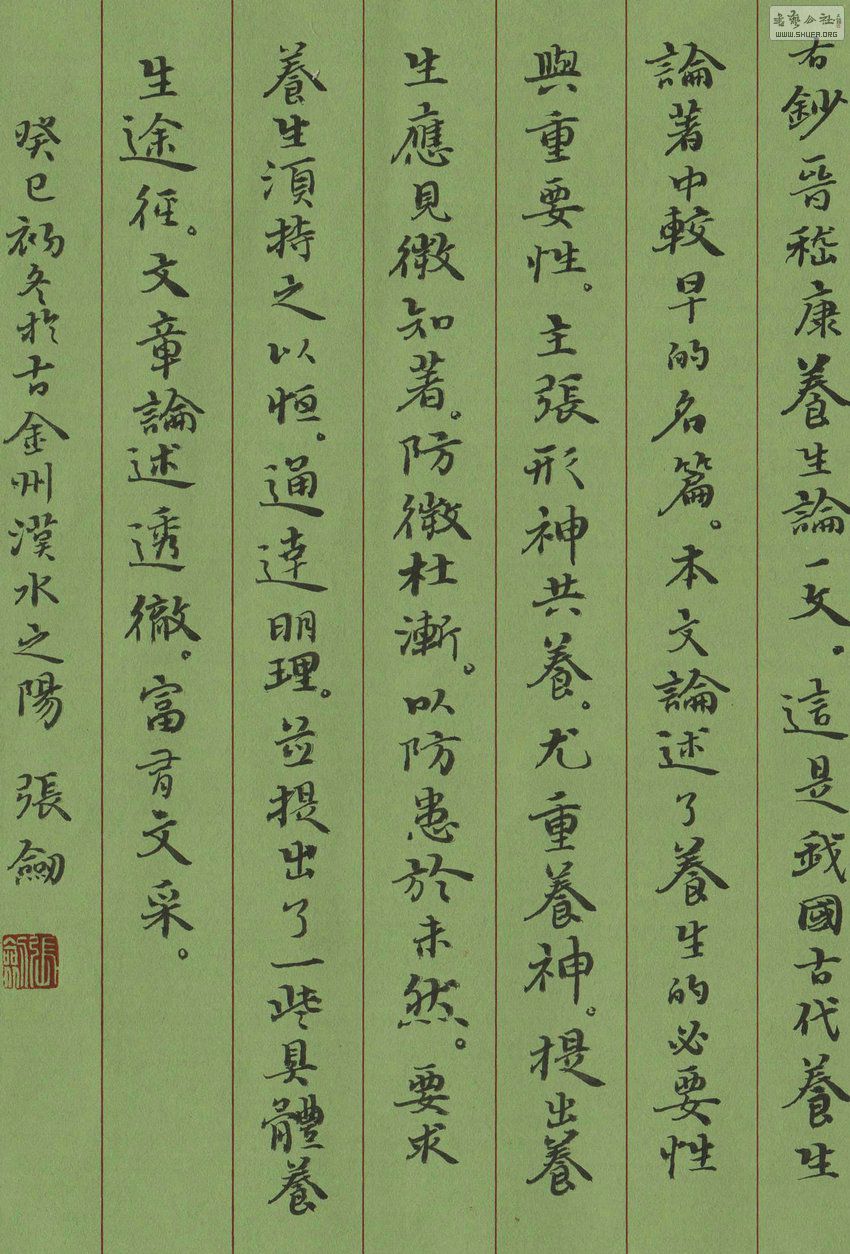 右鈔晉嵇康養生論一文。這是我國古代養生
論著中較早的名篇。本文論述了養生的必要性
與重要性。主張形神共養。尤重養神。提出養
生應見微知著。防微杜漸。以防患於未然。要求
養生須持之以恒。通達明理。並提出了一些具體養
生途徑。文章論述透徹。富有文采。
癸巳初冬於古金州漢水之陽 張劍
張劍
書藝公社
WWW.SHUFA.ORG